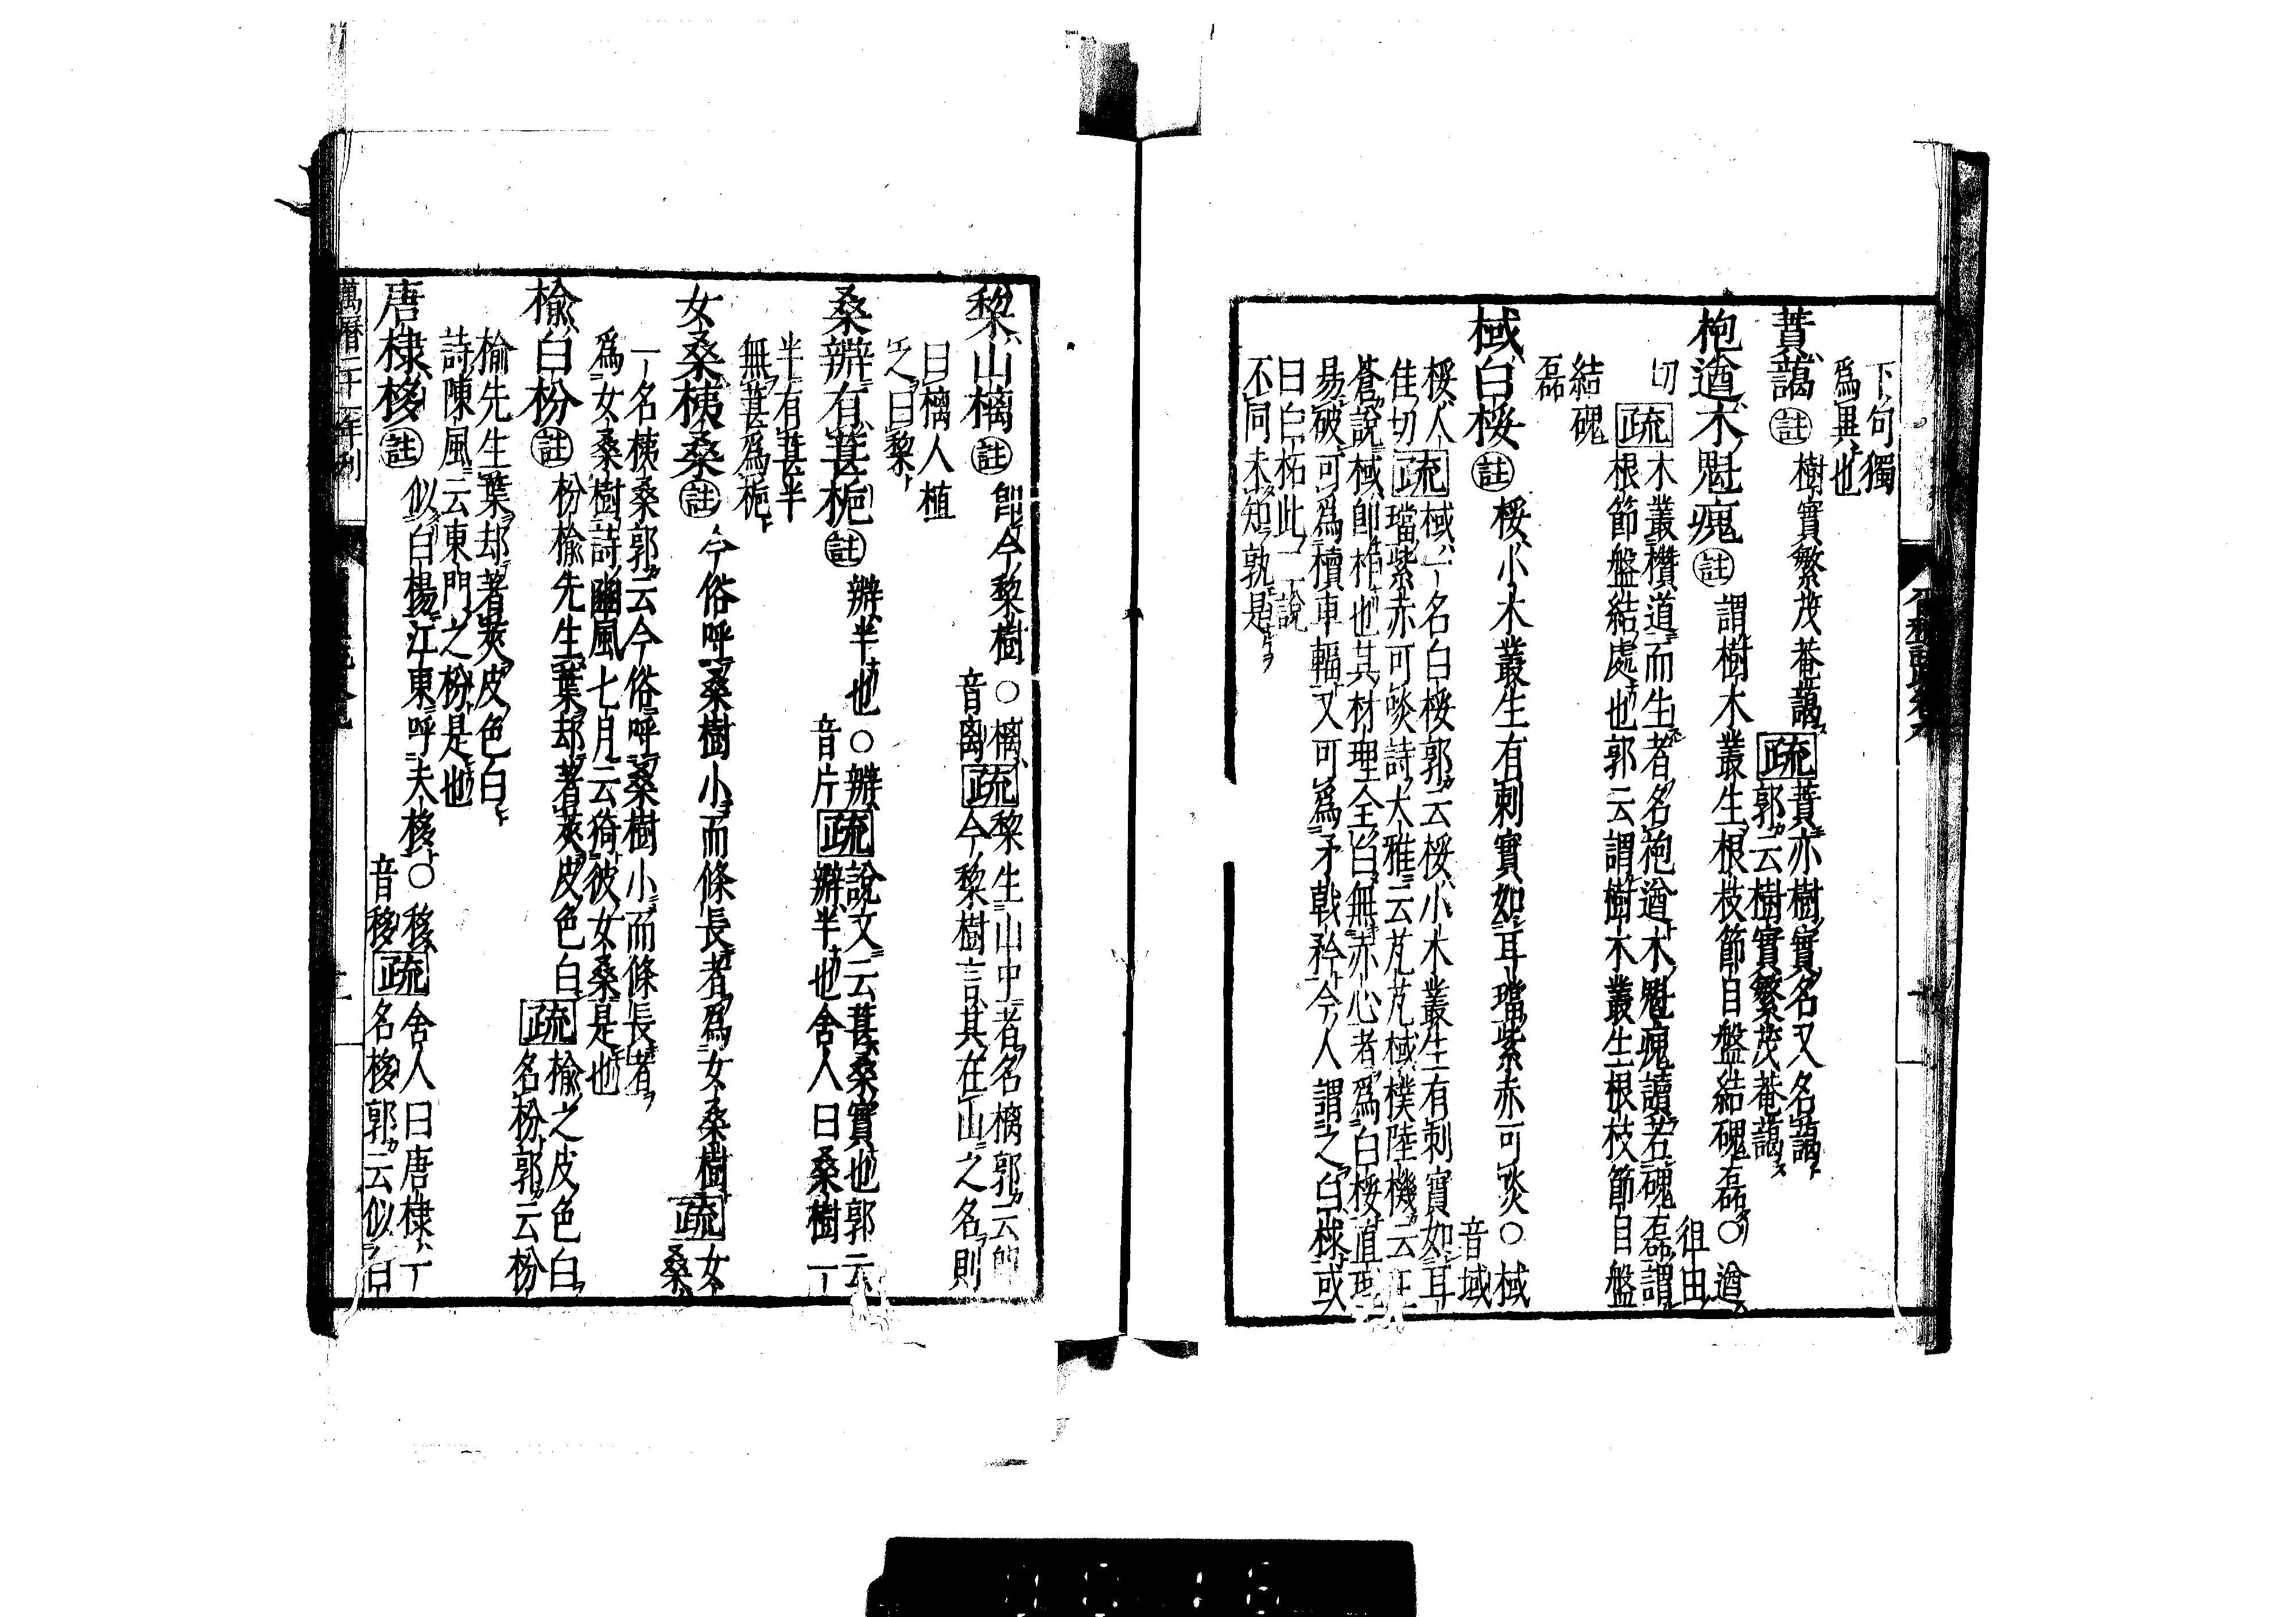 下句獨
爲異也
蕡藹 註 樹實繁茂菴藹 疏 蕡亦樹實名又名藹
郭云樹實繁茂菴藹
枹遒木魁瘣 註 謂樹木叢生根枝節目盤結磈磊○遒
徂由
切 疏 木叢攢遒而生者名枹遒木魁瘣讀若磈磊謂
根節盤結處也郭云謂樹木叢生根枝節目盤
結磈
磊
棫白桵 註 桵小木叢生有刺實如耳璫紫赤可啖○棫
音域
桵人
佳切 疏 棫一名白桵郭云桵小木叢生有刺實如耳
璫紫赤可啖詩大雅云芃芃棫樸陸機云三
蒼說棫卽柞也其材理全白無赤心者爲白桵直理
易破可爲櫝車輻又可爲矛戟矜今人謂之白梂或
曰白柘此二說
不同未知孰是
棃山樆 註 卽今棃樹○樆
音离 疏 棃生山中者名樆郭云卽
今棃樹言其在山之名則
曰樆人植
之曰棃
桑辨有葚梔 註 辨半也○辨
音片 疏 說文云葚桑實也郭云
辨半也舍人曰桑樹一
半有葚半
無葚爲梔
女桑桋桑 註 今俗呼桑樹小而條長者爲女桑樹 疏 女
桑
一名桋桑郭云今俗呼桑樹小而條長者
爲女桑樹詩豳風七月云猗彼女桑是也
榆白枌 註 枌榆先生葉却著莢皮色白 疏 榆之皮色白
名枌郭云枌
榆先生葉却著莢皮色白
詩陳風云東門之枌是也
唐棣栘 註 似白楊江東呼夫栘○栘
音移 疏 舍人曰唐棣一
名栘郭云似白
萬曆二十一年刊